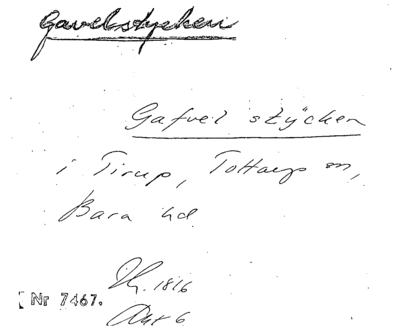 Gavelstycken
Gafvel stÿcken
i Tirup, Tottarps sn,
Bara hd
1816
Nr 7467.
Akt 6